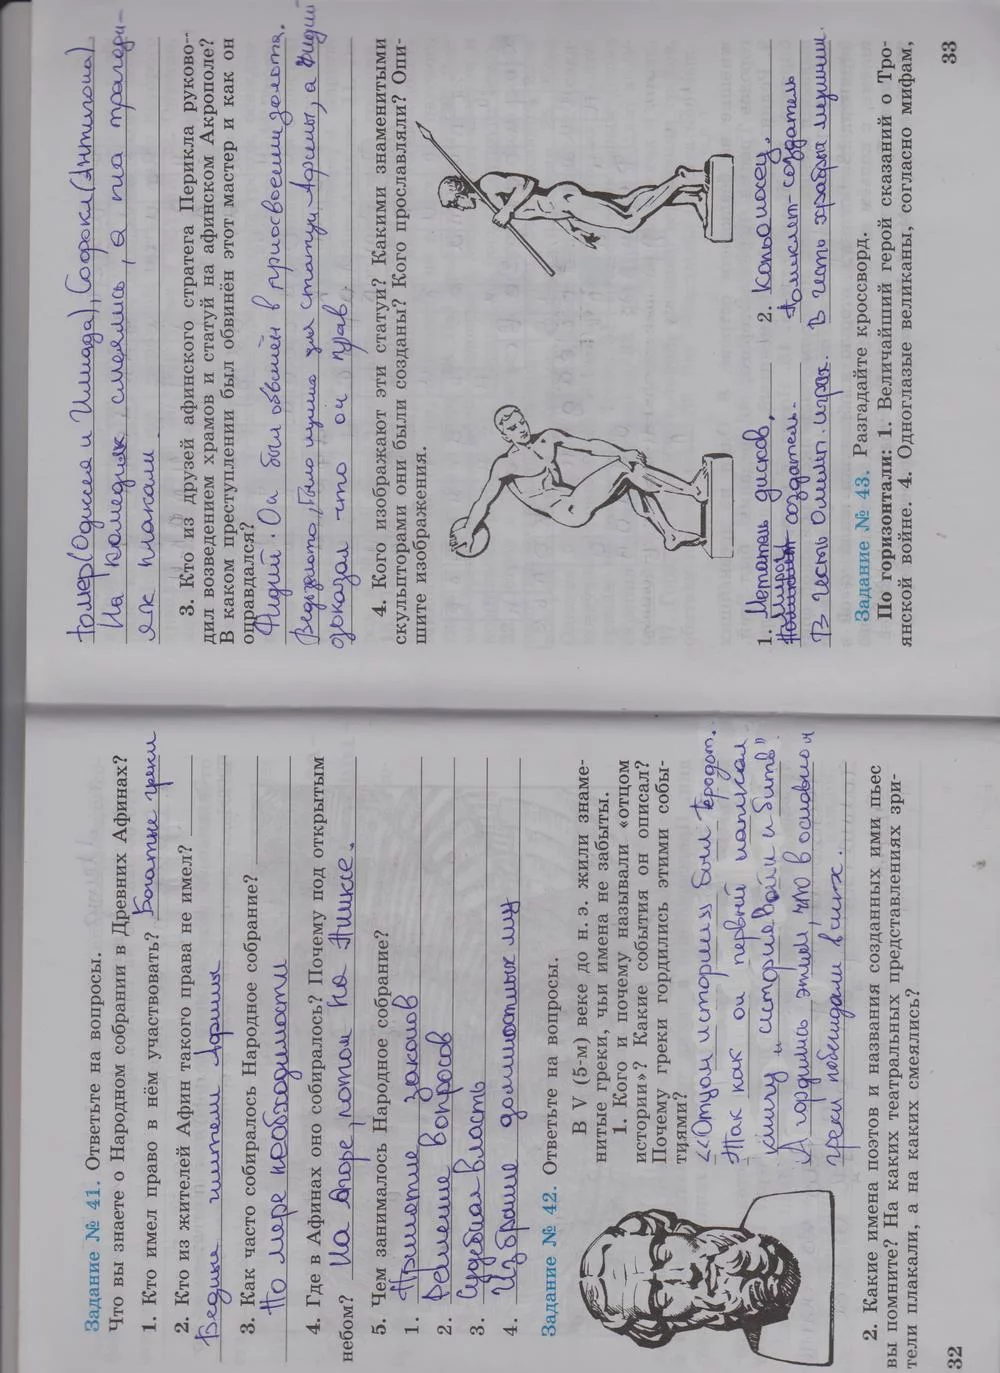 Задание № 41. Ответьте на вопросы.
Что вы знаете о Народном собрании в Древних Афинах?
1. Кто имел право в нём участвовать? Богатые греки
2. Кто из жителей Афин такого права не имел?
Бедные жители Афины
3. Как часто собиралось Народное собрание?
По мере необходимости
4. Где в Афинах оно собиралось? Почему под открытым
небом? На Агоре, потом на Пникс.
5. Чем занималось Народное собрание?
1. Принятие законов
2. Решение вопросов
3. Судебная власть
4. Избрание должностных лиц
Задание № 42. Ответьте на вопросы.
В V (5-м) веке до н. э. жили знаме-
нитые греки, чьи имена не забыты.
1. Кого и почему называли «отцом
истории»? Какие события он описал?
Почему греки гордились этими собы-
тиями?
«Отцом истории» был Геродот.
Так как он первый написал
книгу и историей войн и битв"
А гордились этим, что в основном
греки побеждали в них.
2. Какие имена поэтов и названия созданных ими пьес
вы помните? На каких театральных представлениях зри-
тели плакали, а на каких смеялись?
32
Гомер (Одиссея и Илиада), Софокл (Антигона)
На комедиях смеялись, а на трагеди-
ях плакали.
3. Кто из друзей афинского стратега Перикла руково-
дил возведением храмов и статуй на афинском Акрополе?
В каком преступлении был обвинён этот мастер и как он
оправдался?
Фидий. Он был обвинён в присвоении золота.
Ведь золото, было нужно для статуи Афины, а Фидий
доказал что он прав.
4. Кого изображают эти статуи? Какими знаменитыми
скульпторами они были созданы? Кого прославляли? Опи-
шите изображения.
1. Метатель дисков,
Мирон создатель.
В честь Олимп. игры.
2. Копьеносец,
Поликлет-создатель
В честь храбрых мужчин.
Задание № 43. Разгадайте кроссворд.
По горизонтали: 1. Величайший герой сказаний о Тро-
янской войне. 4. Одноглазые великаны, согласно мифам,
33